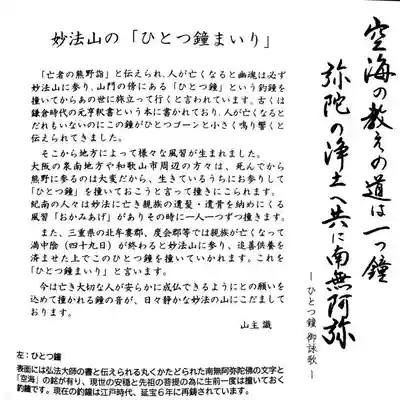 空海の教えの道は一つ鐘
弥陀の浄土へ共に南無阿弥
―ひとつ鐘 御詠歌―
妙法山の「ひとつ鐘まいり」
「亡者の熊野詣」と伝えられ、人が亡くなると幽魂は必ず
妙法山に参り、山門の傍にある「ひとつ鐘」という釣鐘を
撞いてからあの世に旅立って行くと言われています。古くは
鎌倉時代の元亨釈書という本に書かれており、人が亡くなると
だれもいないのにこの鐘がひとつゴーンと小さく鳴り響くと
伝えられてきました。
そこから地方によって様々な風習が生まれました。
大阪の泉南地方や和歌山市周辺の方々は、死んでから
熊野に参るのは大変だから、生きているうちにお参りして
「ひとつ鐘」を撞いておこうと言って撞きにこられます。
紀南の人々は妙法に亡き親族の遺髪・遺骨を納めにくる
風習「おかみあげ」がありその時に一人一つずつ撞きます。
また、三重県の北牟婁郡、度会郡等では親族が亡くなって
満中陰(四十九日)が終わると妙法山に参り、追善供養を
済ませた上でこのひとつ鐘を撞いていかれます。これを
「ひとつ鐘まいり」と言います。
今は亡き大切な人が安らかに成仏できるようにとの願いを
込めて撞かれる鐘の音が、日々静かな妙法の山にこだまして
おります。
山主 識
左:ひとつ鐘
表面には弘法大師の書と伝えられる丸くかたどられた南無阿弥陀佛の文字と
「空海」の銘が有り、現世の安穏と先祖の菩提の為に生前一度は撞いておく
釣鐘です。現在の釣鐘は江戸時代、延宝6年に再鋳されています。